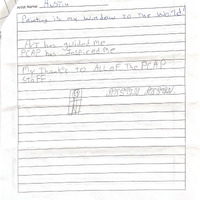 Artist Name: Austin
Painting is my window to the world!
Art has guided me
PCAP has inspired me
My thanks to All of The PCAP
Staff.